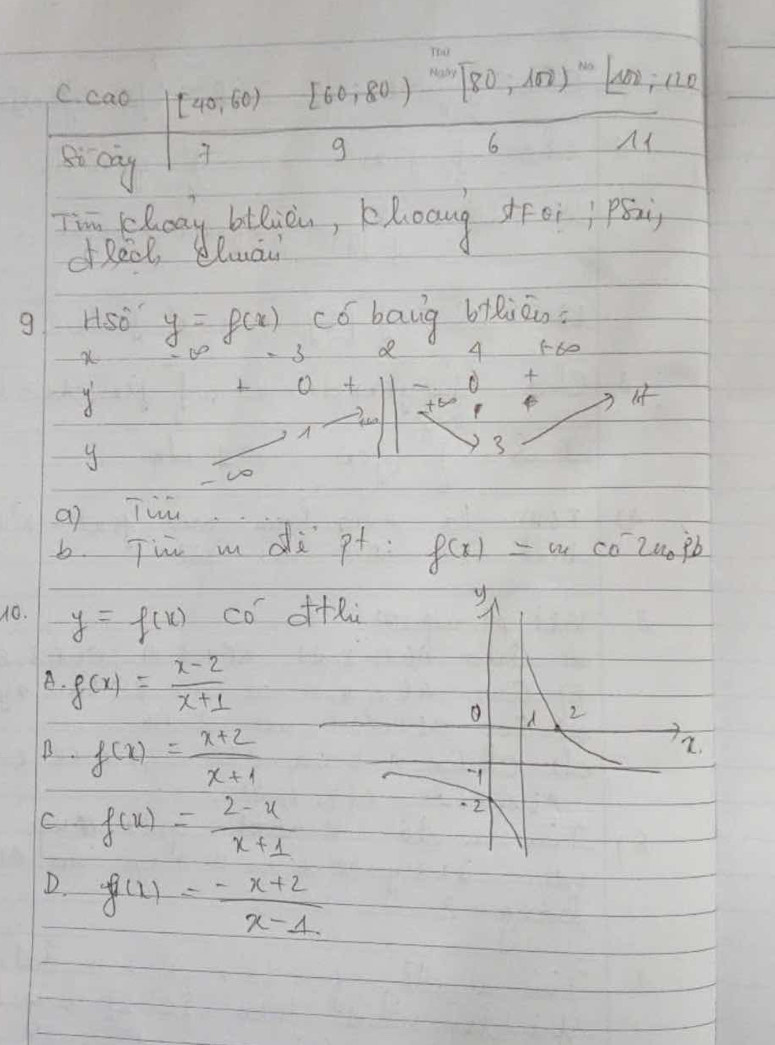 Thứ
Ngày
No
C.cao [40;60) [60;80) [80;100) [100;120
Số cây 7 9 6 11
Tìm khoảg bthiên, khoảng tứ vị; PSai,
đ lệch chuẩn
9 Hsố y = f(x) có bảng bthiên:
x -∞ -3 2 4 +∞
y' + 0 + - 0 +
y -∞ 1 +∞ +∞ 3 +∞
a) Tìm ....
b. Tìm m để pt: f(x) = m có 2 no pb
10. y = f(x) có đthị
A. f(x) = x-2 / x+1
B. f(x) = x+2 / x+1
C f(x) = 2-x / x+1
D. f(x) = -x+2 / x-1.
y
0 1 2
x.
-1
-2